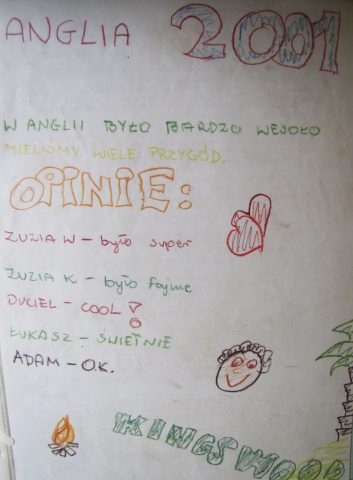 ANGLIA 2001
W ANGLII BYŁO BARDZO WESOŁO
MIELIŚMY WIELE PRZYGÓD.
OPINIE:
ZUZIA W – było super
ZUZIA K – było fajnie
DUCIEL – COOL!
ŁUKASZ – ŚWIETNIE
ADAM – O.K.
KINGSWOOD